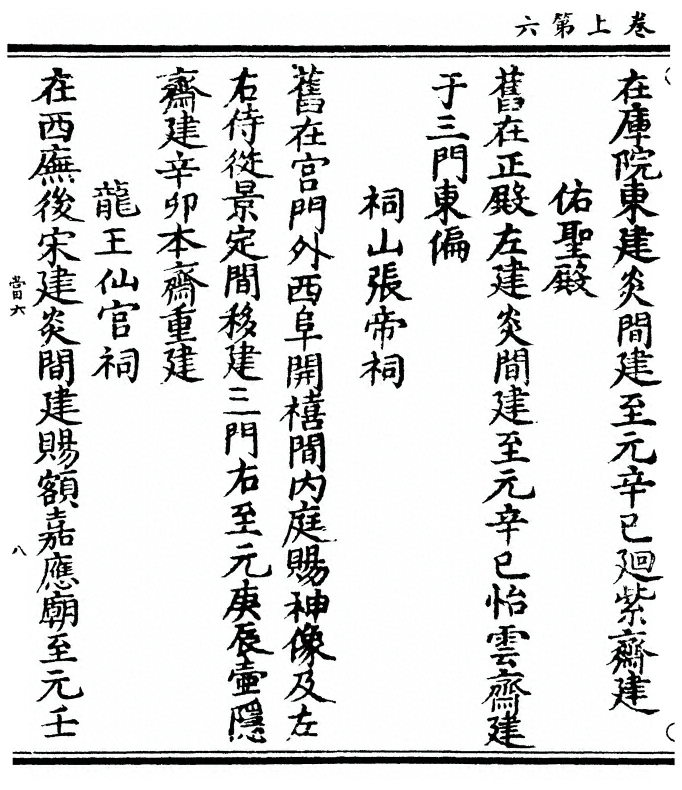 卷上第六
在庫院東建炎間建至元辛巳廻紫齋建
佑聖殿
舊在正殿左建炎間建至元辛巳怡雲齋建
于三門東偏
祠山張帝祠
舊在宮門外西阜開禧間內庭賜神像及左
右侍從景定間移建三門右至元庚辰壷隱
齋建辛卯本齋重建
龍王仙官祠
在西廡後宋建炎間建賜額嘉應廟至元壬
當六
八